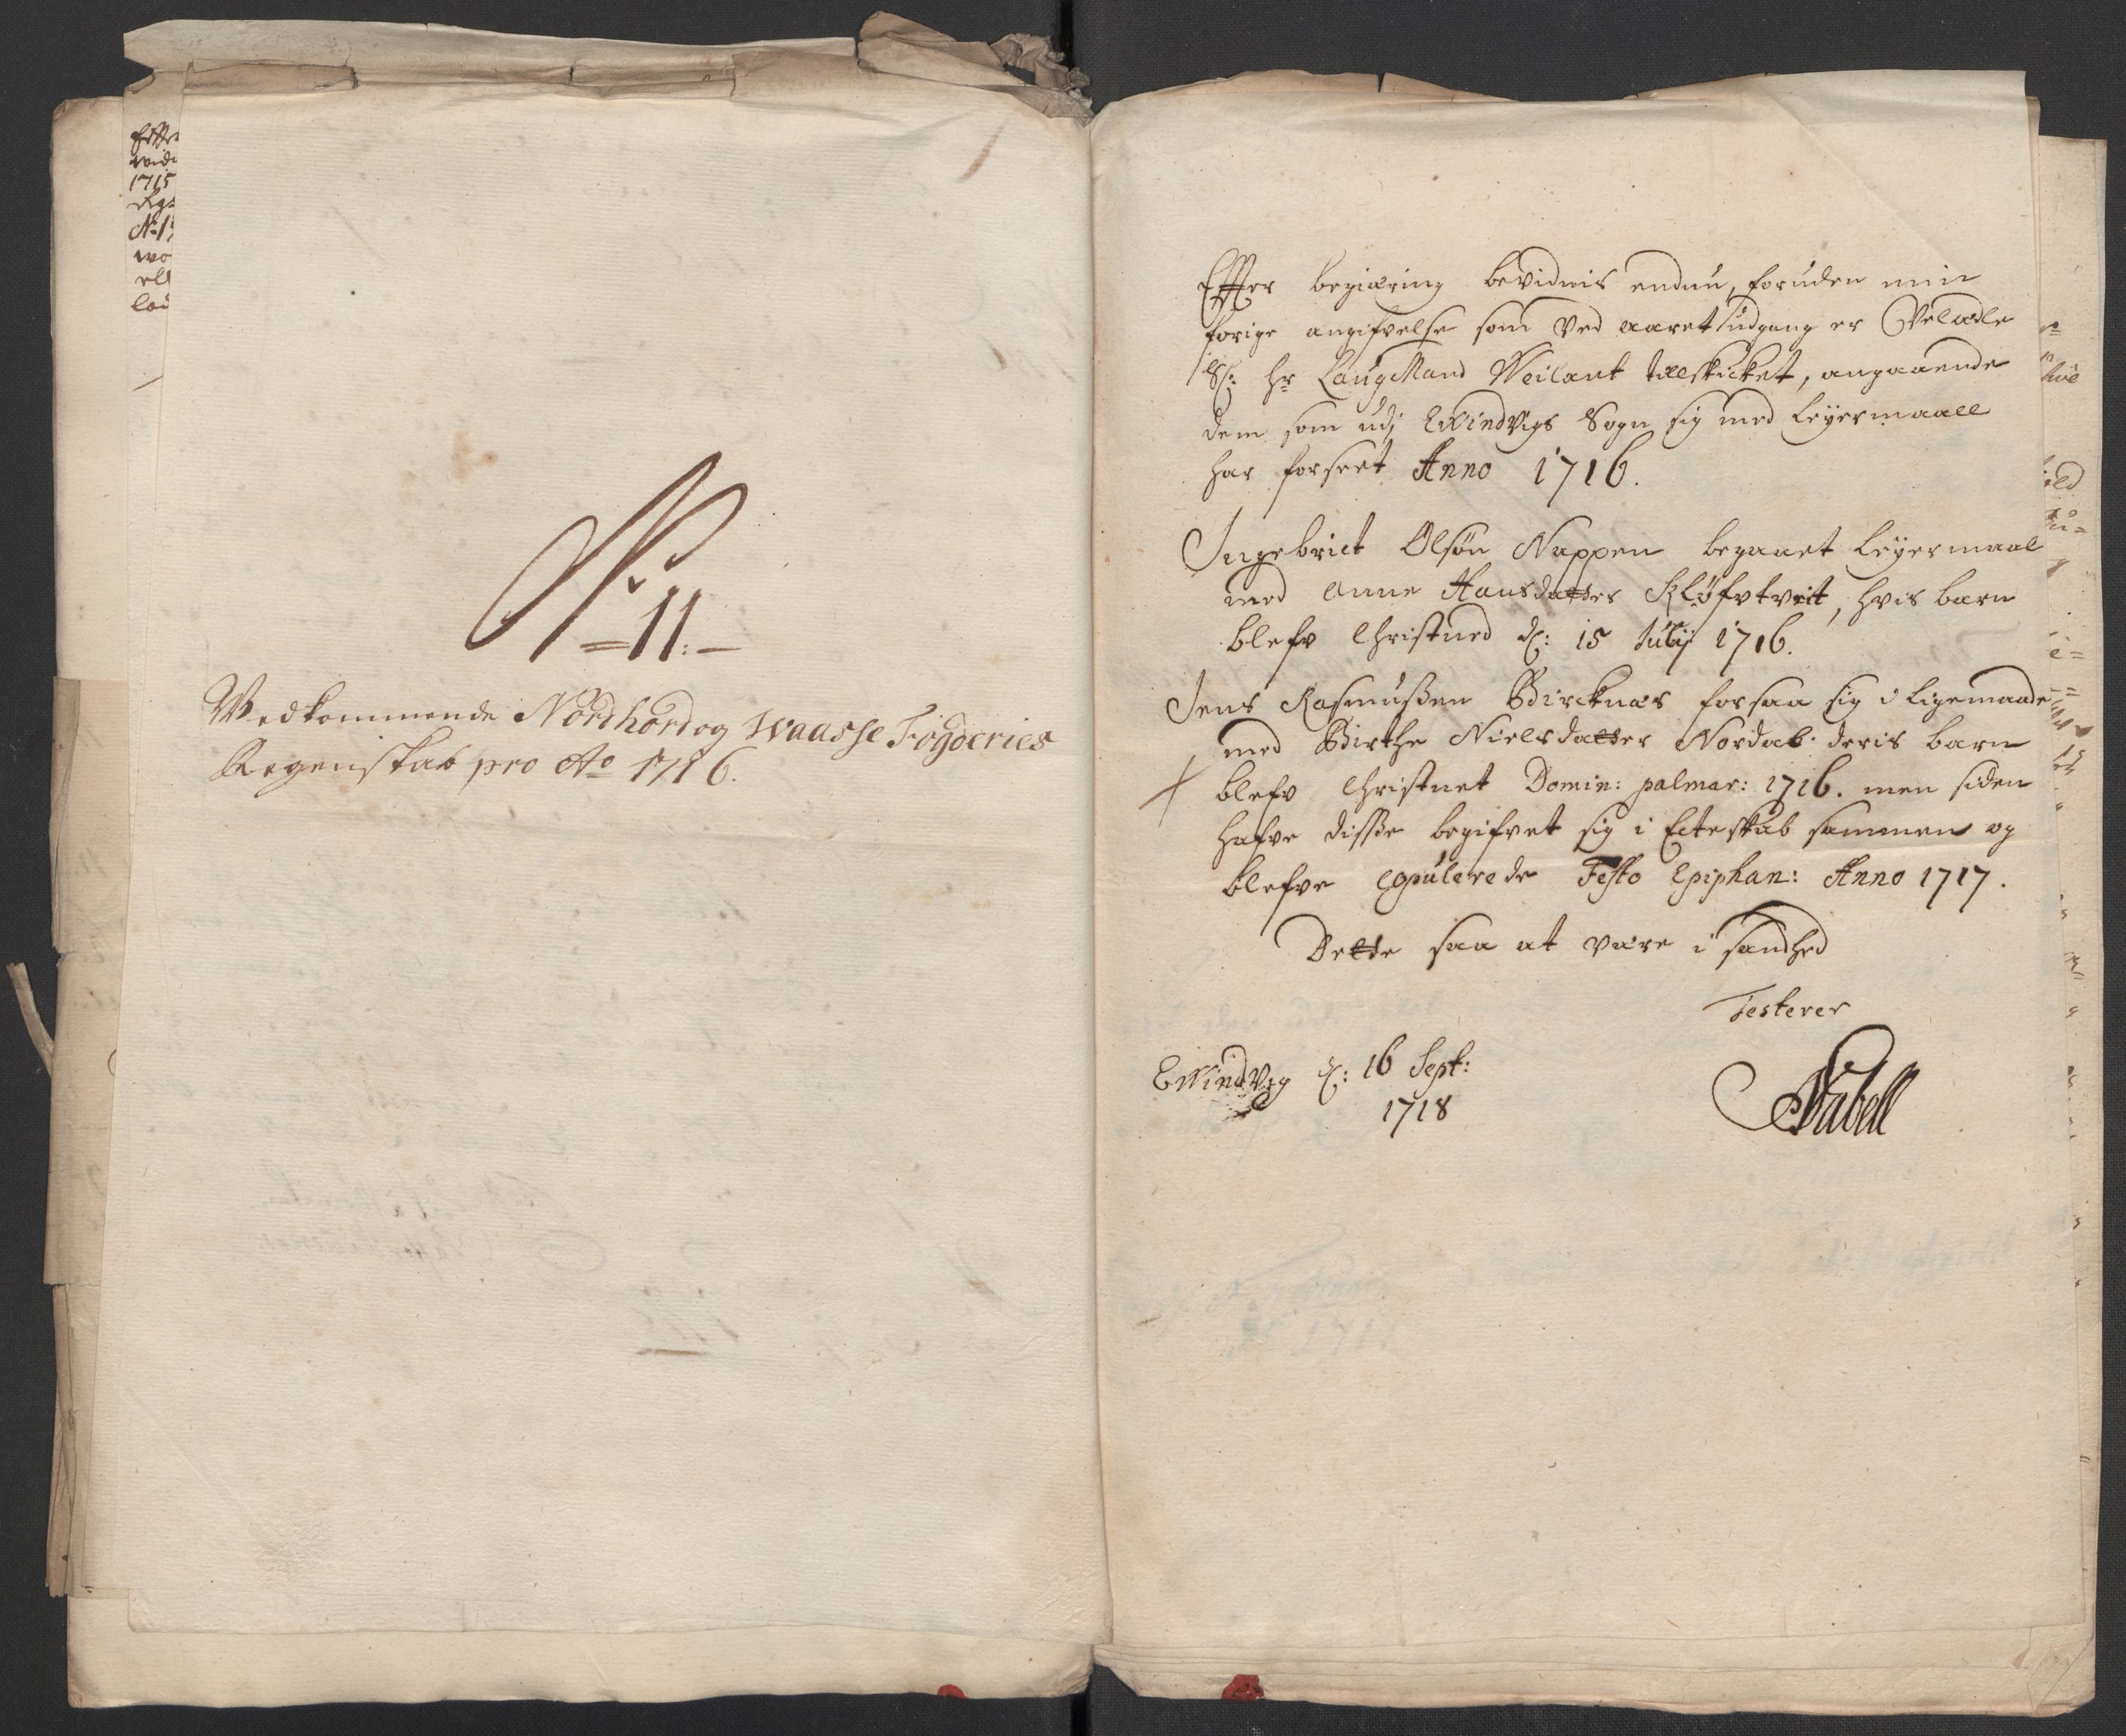 No 11.
Vedkommende Nordhord og Waasse Fogderies
Regenskab pro Ao 1716.
1715
Effter begiæring bevidnis endnu, foruden min
forige angifvelse som ved aaret udgang er Velædle
Sr: Hr LaugMand Weilant tilskicket, angaaende
dem som udj Ewindvigs Sogn sig med Leÿermaall
har forseet Anno 1716.
Ingebrict Olsøn Nappen begaaet Leÿermaal
med Anne Hansdatter Kløfvtveit, hvis barn
blefv Christned d: 15 Julij 1716.
Jens Rasmußen Bircknæs forsaa sig i ligemaade
med Birthe Nielsdatter Nordab. deris barn
blefv Christnet Domin: palmar: 1716. men siden
hafve disse begifvet sig i Ecteskab sammen og
blefve Copulerede Festo Epiphan: Anno 1717.
Dette saa at være i sandhed
Testerer
Ewindvig d: 16 Sept:
1718
Nabell